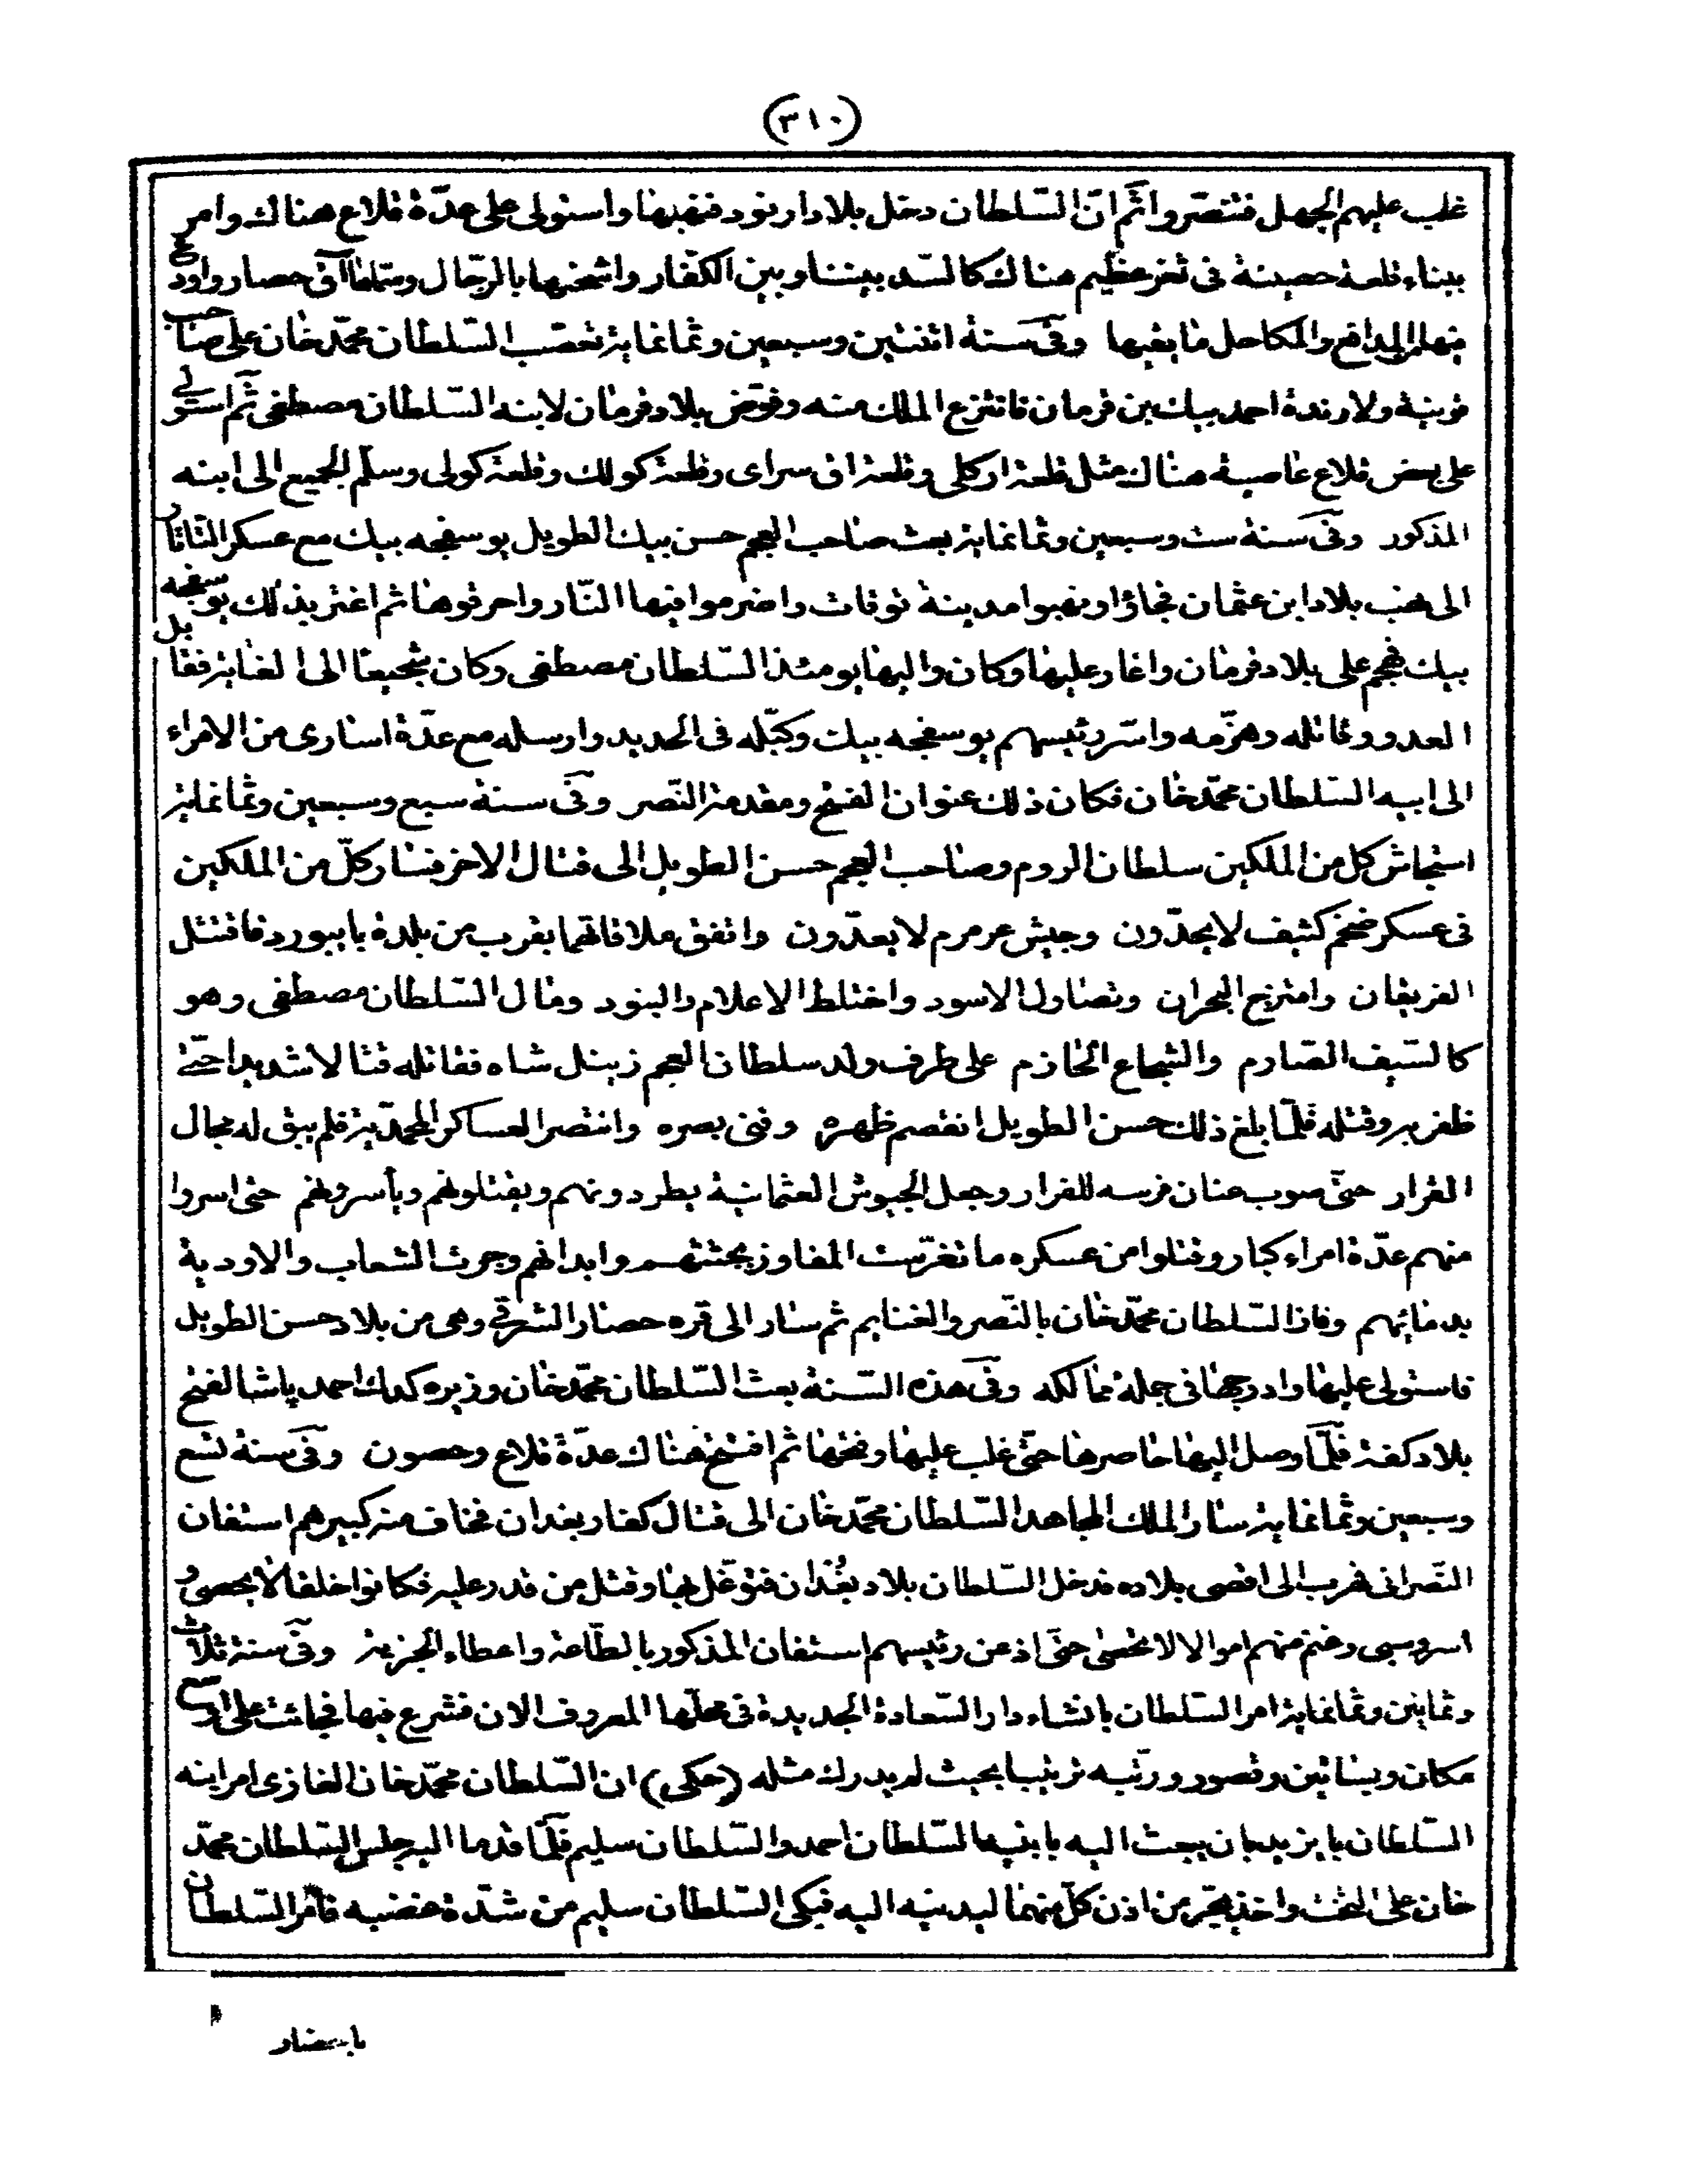 (٣١٠)
غلب عليهم الجهل فتنصّروا ثم انّ السّلطان دخل بلاد ارنود فنهبها واستولى على عدّة قلاع هناك وامر
ببناء قلعة حصينة فى ثغر عظيم هناك كالسّد بيننا وبين الكفّار واشحنها بالرّجال وسمّاها آق حصار واودع
فيها من المدافع والمكاحل ما يفيها وفى سنة اثنتين وسبعين وثمانماية تعصّب السّلطان محمّد خان على صاحب
قونية ولارندة احمد بيك بن قرمان فانتزع الملك منه وفوّض بلاد قرمان لابنه السّلطان مصطفى ثم استولى
على بعض قلاع عاصية هناك مثل قلعة اركلى وقلعة اق سراى وقلعة كولك وقلعة كولى وسلّم الجميع الى ابنه
المذكور وفى سنة ست وسبعين وثمانماية بعث صاحب العجم حسن بيك الطويل يوسفجه بيك مع عسكر التّاتار
الى نهب بلاد ابن عثمان فجاؤا ونهبوا مدينة توقات واضرموا فيها النّار واحرقوها ثم اغتر بذلك يوسفجه
بيك فهجم على بلاد قرمان واغار عليها وكان واليها يومئذ السّلطان مصطفى وكان شجيعا الى الغاية فقابل
العدو وقاتله وهزّمه واسّر رئيسهم يوسفجه بيك وكبّله فى الحديد وارسله مع عدّة اسارى من الامراء
الى ابيه السّلطان محمّد خان فكان ذلك عنوان الفتح ومقدمة النّصر وفى سنة سبع وسبعين وثمانماية
استجاش كل من الملكين سلطان الروم وصاحب العجم حسن الطويل الى قتال الاخر فسار كلّ من الملكين
فى عسكر ضخم كثيف لا يحدّون وجيش عرمرم لا يعدّون واتفق ملاقاتهما بقرب من بلدة بايبورد فاقتتل
الفريقان وامتزج البحران وتصاول الاسود واختلط الاعلام والبنود ومال السّلطان مصطفى وهو
كالسّيف الصّارم والشجاع الحازم على طرف ولد سلطان العجم زينل شاه فقاتله قتالا شديدا حتّى
ظفر به وقتله فلمّا بلغ ذلك حسن الطويل انقصم ظهره وفنى بصره وانتصر العساكر المحمّديّة فلم يبق له مجال
القرار حتّى صوب عنان فرسه للفرار وجعل الجيوش العثمانية يطردونهم ويقتلونهم ويأسرونهم حتى اسروا
منهم عدّة امراء كبار وقتلوا من عسكره ما تغرّست المفاوز بجثتهم وابدانهم وجرت الشعاب والاودية
بدمائهم وفاز السّلطان محمّد خان بالنّصر والغنايم ثم سار الى قره حصار الشرقى وهى من بلاد حسن الطويل
فاستولى عليها وادرجها فى جملة ممالكه وفى هذه السّنة بعث السّلطان محمّد خان وزيره كدك احمد پاشا لفتح
بلاد كفه فلمّا وصل اليها حاصرها حتّى غلب عليها وفتحها ثم افتتح هناك عدّة قلاع وحصون وفى سنة تسع
وسبعين وثمانماية سار الملك المجاهد السّلطان محمّد خان الى قتال كفار بغدان فخاف منه كبيرهم استفان
النّصرانى فهرب الى اقصى بلاده فدخل السّلطان بلاد بُغْدان فتوغّل بها وقتل من قدر عليه فكانوا خلقا لا يحصى و
اسر وسبى وغنم منهم اموالا لا تحصى حتّى اذعن رئيسهم استفان المذكور بالطّاعة واعطاء الجزية وفى سنة ثلاث
وثمانين وثمانماية امر السّلطان بانشاء دار السّعادة الجديدة فى محلّها المعروف الان فشرع فيها فجائت على اوسع
مكان وبساتين وقصور ورتّبه ترتيبا بحيث لم يدرك مثله (حكى) ان السّلطان محمّد خان الغازى امر ابنه
السّلطان بايزيد بان يبعث اليه بابنيه السّلطان احمد والسّلطان سليم فلمّا قدما اليه جلس السّلطان محمّد
خان على التخت واخذ يجّر من اذن كلّ منهما ليدنيه اليه فبكى السّلطان سليم من شدّة غضبه فامر السّلطان
باحضار